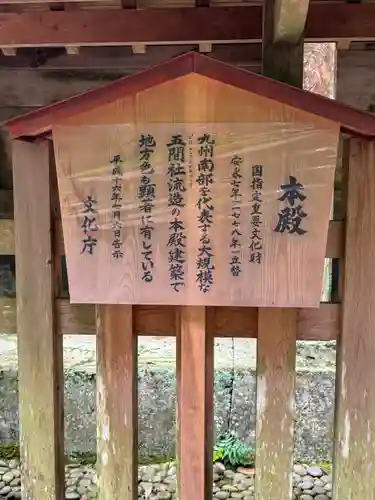 本殿
国指定重要文化財
安永七年(一七七八年)立替
九州南部を代表する大規模な
五間社流造の本殿建築で
地方色も顕著に有している
平成十六年一月六日告示
文化庁